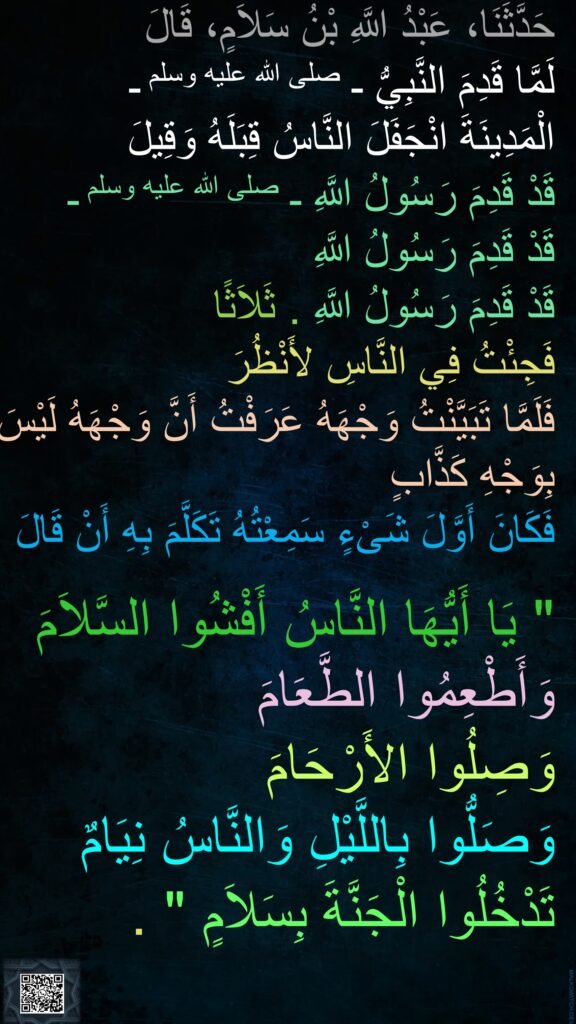 حَدَّثَنَا، عَبْدُ اللَّهِ بْنُ سَلاَمٍ، قَالَ
لَمَّا قَدِمَ النَّبِيُّ ـ صلى الله عليه وسلم ـ
الْمَدِينَةَ انْجَفَلَ النَّاسُ قِبَلَهُ وَقِيلَ
قَدْ قَدِمَ رَسُولُ اللَّهِ ـ صلى الله عليه وسلم ـ
قَدْ قَدِمَ رَسُولُ اللَّهِ
قَدْ قَدِمَ رَسُولُ اللَّهِ . ثَلاَثًا
فَجِئْتُ فِي النَّاسِ لأَنْظُرَ
فَلَمَّا تَبَيَّنْتُ وَجْهَهُ عَرَفْتُ أَنَّ وَجْهَهُ لَيْسَ
بِوَجْهِ كَذَّابٍ
فَكَانَ أَوَّلَ شَىْءٍ سَمِعْتُهُ تَكَلَّمَ بِهِ أَنْ قَالَ
" يَا أَيُّهَا النَّاسُ أَفْشُوا السَّلاَمَ
وَأَطْعِمُوا الطَّعَامَ
وَصِلُوا الأَرْحَامَ
وَصَلُّوا بِاللَّيْلِ وَالنَّاسُ نِيَامٌ
تَدْخُلُوا الْجَنَّةَ بِسَلاَمٍ " .